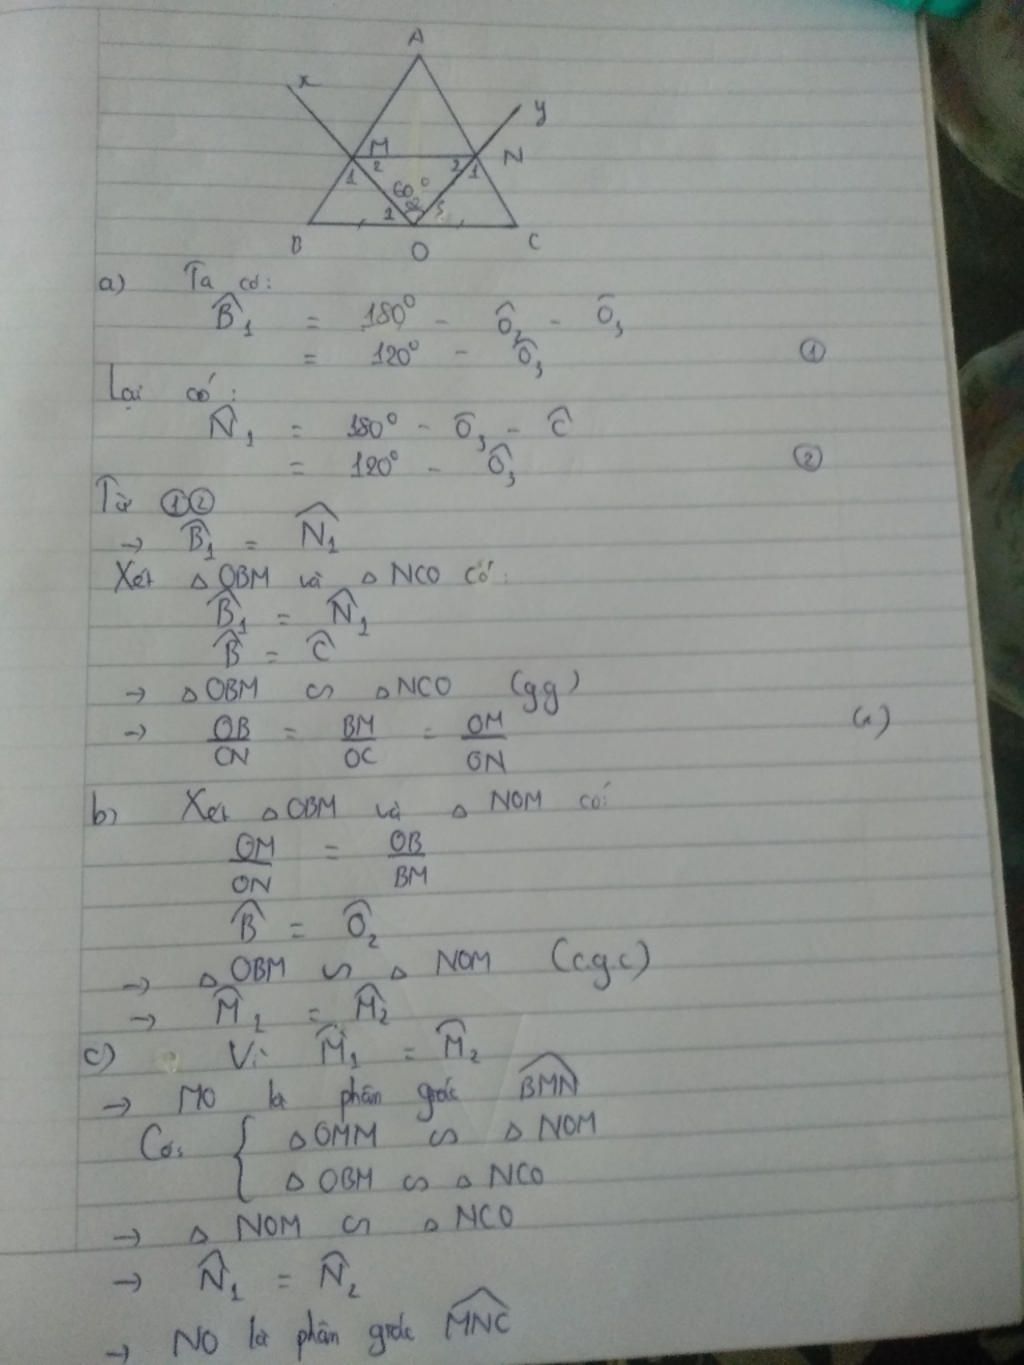 A
x
y
M
N
2
2
1
1
60°
1
2
3
B
O
C
a) Ta có:
B̂₁ = 180° - Ô₂ - Ô₃
= 120° - Ô₃ ①
Lại có:
N̂₁ = 180° - Ô₃ - Ĉ
= 120° - Ô₃ ②
Từ ①②
→ B̂₁ = N̂₁
Xét △OBM và △NCO có:
B̂₁ = N̂₁
B̂ = Ĉ
→ △OBM ∽ △NCO (gg)
→ OB/CN = BM/OC = OM/ON (1)
b) Xét △OBM và △NOM có:
OM/ON = OB/BM
B̂ = Ô₂
→ △OBM ∽ △NOM (c.g.c)
→ M̂₁ = M̂₂
c) Vì M̂₁ = M̂₂
→ MO là phân giác BMN
Có: { △OMM ∽ △NOM
△OBM ∽ △NCO
→ △NOM ∽ △NCO
→ N̂₁ = N̂₂
→ NO là phân giác MNC